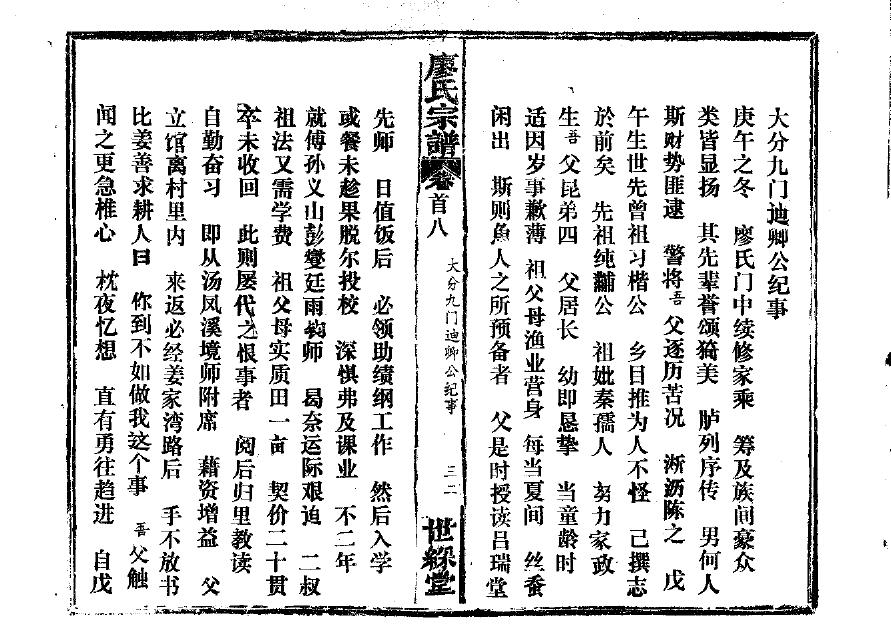 大分九门迪卿公纪事
庚午之冬 廖氏门中续修家乘 筹及族间豪众
类皆显扬 其先辈誉颂猗美 胪列序传 男何人
斯财势匪逮 警将吾父逐历苦况 淅沥陈之 戊
午生世先曾祖习楷公 乡目推为人不怪 己撰志
於前矣 先祖纯黼公 祖妣秦孺人 努力家政
生吾父昆弟四 父居长 幼即恳挚 当童龄时
适因岁事歉薄 祖父母渔业营身 每当夏间 丝蚕
闲出 斯则魚人之所预备者 父是时授读吕瑞堂
廖氏宗譜
卷首八
大分九门迪卿公纪事
三二
世綵堂
先师 日值饭后 必领助绩纲工作 然后入学
或餐未趁果脱尔投校 深惧弗及课业 不二年
就傅孙义山彭燮廷雨师 曷奈运际艰迫 二叔
祖法又需学费 祖父母实质田一亩 契价二十贯
卒未收回 此则屡代之恨事者 阅后归里教读
自勤奋习 即从汤凤溪境师附席 藉资增益 父
立馆离村里内 来返必经姜家湾路后 手不放书
比姜善求耕人曰 你到不如做我这个事 吾父触
闻之更急椎心 枕夜忆想 直有勇往趋进 自戊